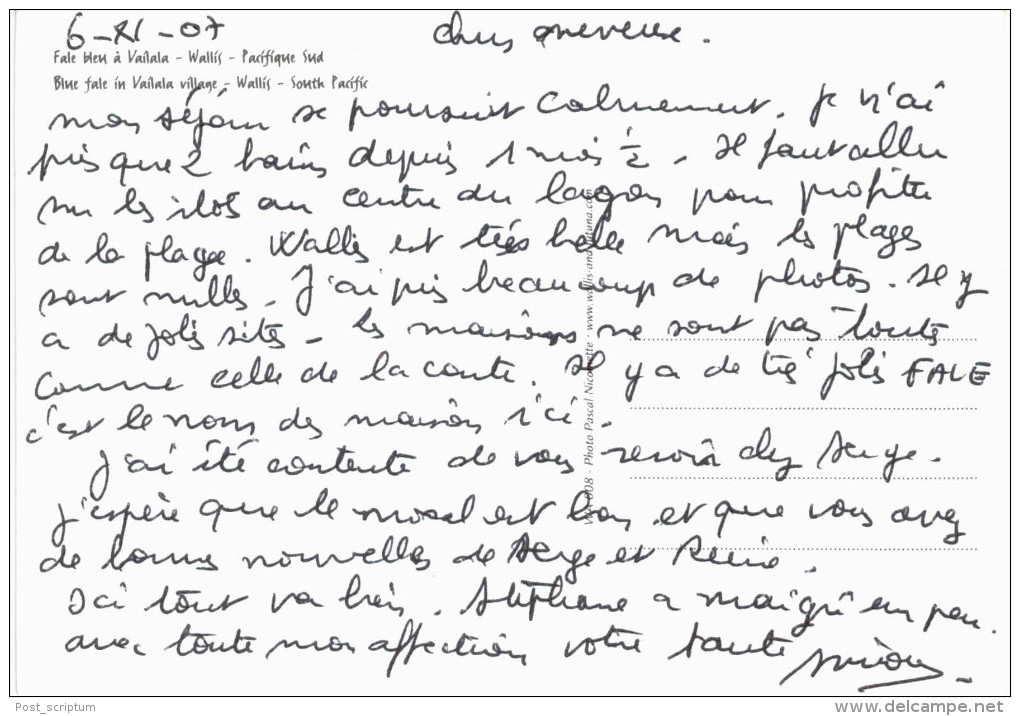 6-XI-07
chers neveux.
Fale bleu à Vailala - Wallis - Pacifique Sud
Blue fale in Vailala village - Wallis - South Pacific
mon séjour se poursuit calmement. Je n'ai
pris que 2 bains depuis 1 mois ½. Il faut aller
sur les ilots au centre du lagon pour profiter
de la plage. Wallis est très belle mais les plages
sont nulles. J'ai pris beaucoup de photos. Il y
a de jolis sites. Les maisons ne sont pas toutes
comme celle de la carte. Il y a de très jolis FALE
c'est le nom des maisons ici.
J'ai été contente de vous revoir chez Serge.
J'espère que le moral est bon et que vous avez
de bonnes nouvelles de Serge et
Ici tout va bien. Stéphane a maigri un peu.
avec toute mon affection votre tante
- Photo Pascal Nicomette - www.wallis-and-futuna.com
Post_scriptum
www.delcampe.net